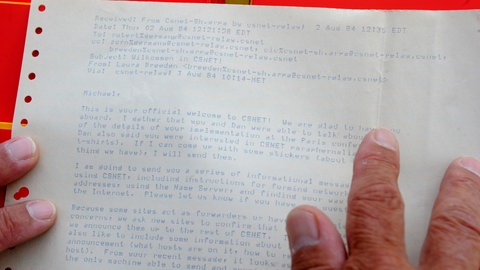 Received: From Csnet-Sh.arpa by csnet-relay; 2 Aug 84 12:35 EDT
Date: Thu, 02 Aug 84 12:21:08 EDT
To:
cc:
breeden%csnet-sh.arpa@csnet-relay.csnet
Subject: Willkomen in CSNET!
From: Laura Breeden <breeden%csnet-sh.arpa@csnet-relay.csnet>
Via: csnet-relay; 3 Aug 84 10:14-MET
Michael,
This is your official welcome to CSNET! We are glad to have you
aboard. I gather that you and Dan were able to talk about
of the details of your implementation at the Paris
Dan also said you were interested in CSNET paraphernalia
t-shirts). If I can come up with some stickers (about
think we have), I will send them.
I am going to send you a series of informational messages
using CSNET, including instructions for forming network
addresses, using the Name Servers and finding your way
the Internet. Please let us know if you have
Because some sites act as forwarders or have
concerns, we ask new sites to confirm that
we announce them up to the rest of CSNET.
also like to include some information about
announcement (what hosts are on it; how to
host). From your recent message it looks
the only machine able to send and